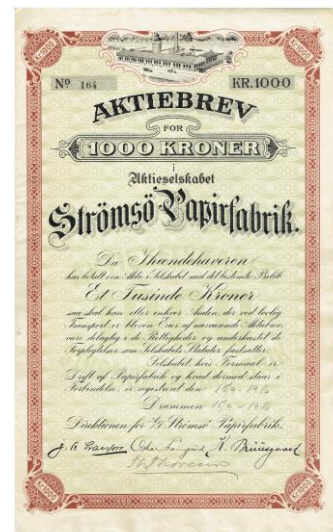 KR.1000
KR.1000
Nº 164 KR.1000
AKTIEBREV
FOR
1000 KRONER
i
Aktieselskabet
Strömsö Papirfabrik.
Da Ihændehaveren
har betalt en Aktie i Selskabet med det bestemte Beløb
Et Tusinde Kroner
saa skal han eller enhver Anden, der ved lovlig
Transport er bleven Eier af nærværende Aktiebrev,
være delagtig i de Rettigheder og underkastet de
Forpligtelser som Selskabets Statuter fastsætter.
Selskabet, hvis Formaal er
Drift af Papirfabrik og hvad dermed staar i
Forbindelse, er registreret den
Drammen
Direktionen for A/S Strömsö Papirfabrik.
KR.1000
KR.1000